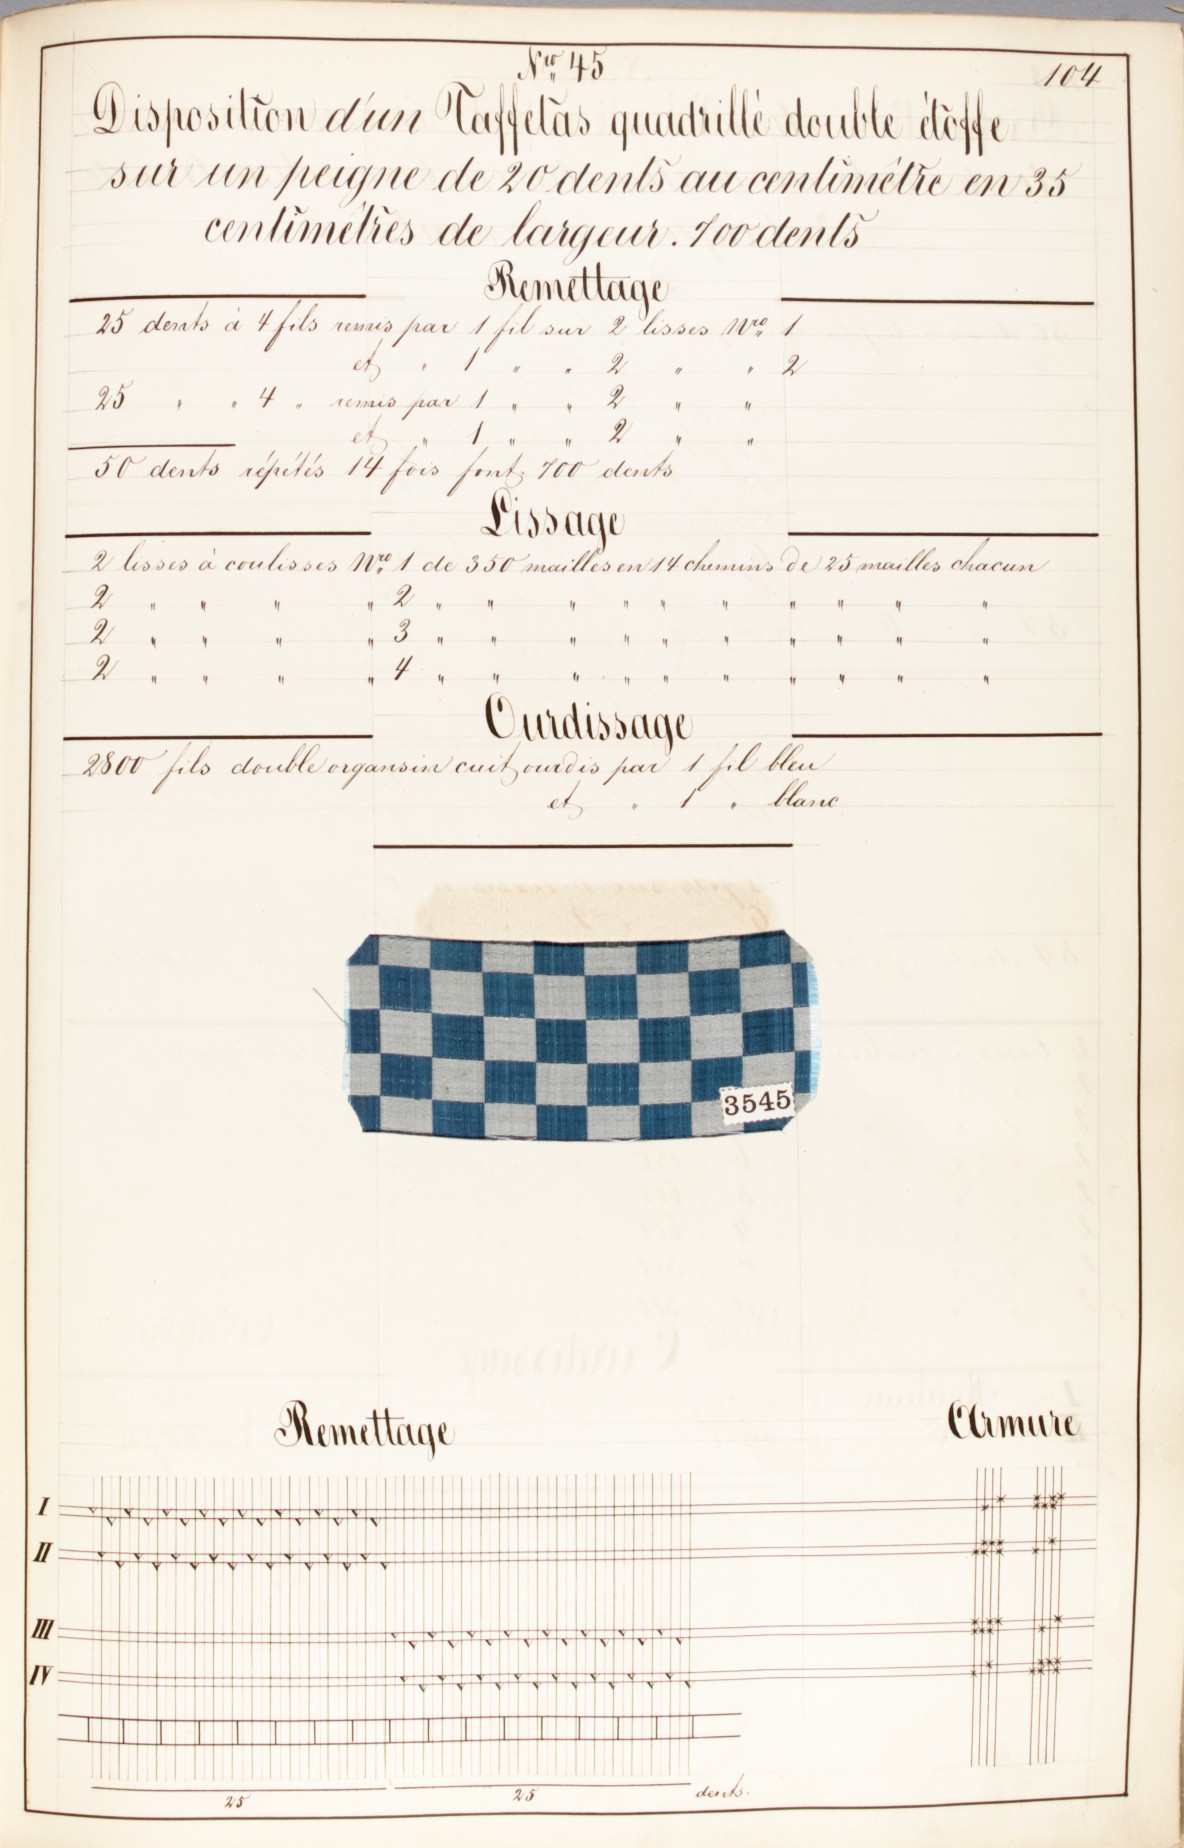 Nro 45
104
Disposition d'un Taffetas quadrillé double étoffe
sur un peigne de 20 dents au centimêtre en 35
centimêtres de largeur. 700 dents
Remettage
25 dents à 4 fils remis par 1 fil sur 2 lisses Nro 1
et " 1 " " 2 " " 2
25 " " 4 " remis par 1 " " 2 " "
et " 1 " " 2 " "
50 dents répétés 14 fois font 700 dents
Lissage
2 lisses à coulisses Nro 1 de 350 mailles en 14 chemins de 25 mailles chacun
2 " " " " 2 " " " " " " " " " "
2 " " " " 3 " " " " " " " " " "
2 " " " " 4 " " " " " " " " " "
Ourdissage
2800 fils double organsin cuit ourdis par 1 fil bleu
et " 1 " blanc
3545
Remettage
Armure
I
II
III
IV
25
25
dents.